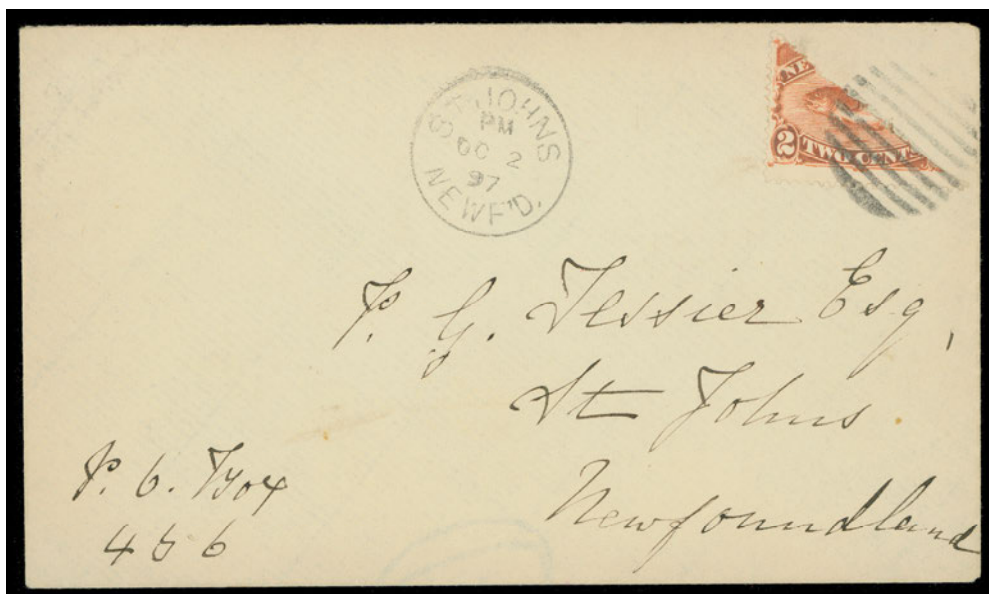 ST. JOHNS
PM
OC 2
97
NEWF'D.
NE
2 TWO CENTS
P. G. Tessier Esq,
St Johns
Newfoundland
P. O. Box
456